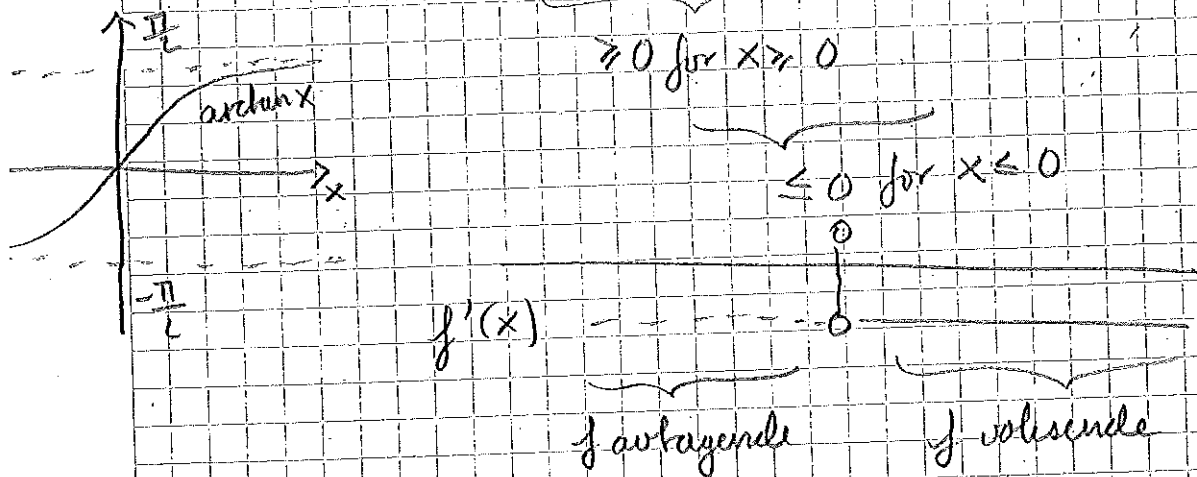 π/2
arctan x
x
-π/2
≥ 0 for x ≥ 0
≤ 0 for x ≤ 0
0
f'(x) 0
f avtagende f voksende